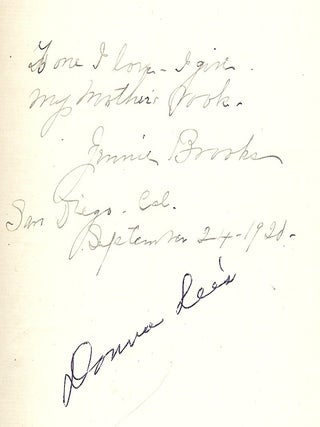 To one I love - I give
My Mother's Book.
Jennie Brooks
San Diego. Cal.
September 24-1920.
Donna Lee's